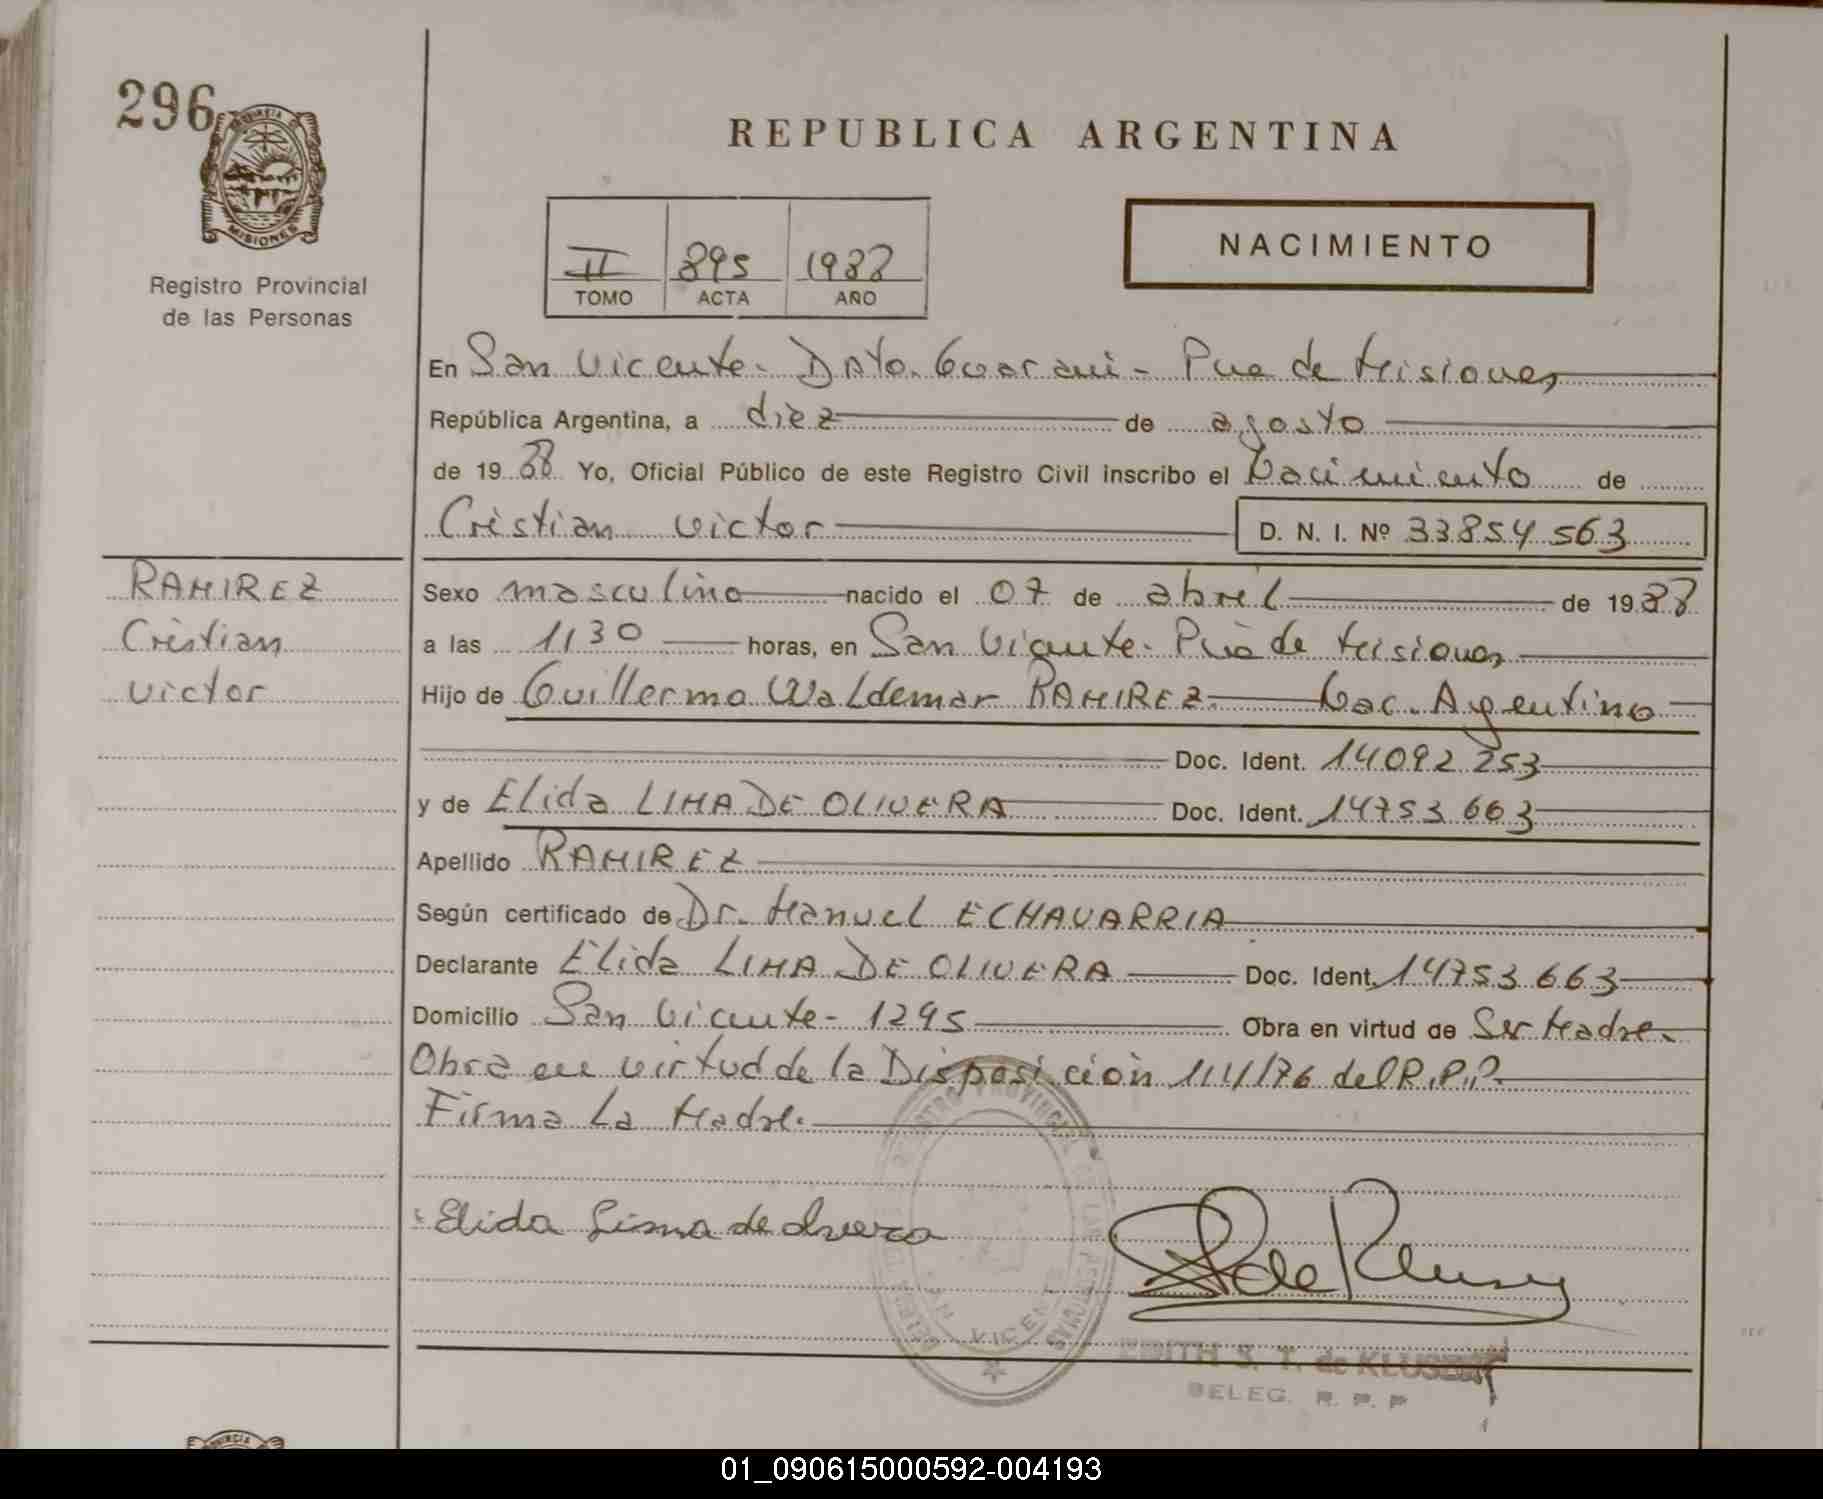 296
PROVINCIA DE
MISIONES
Registro Provincial
de las Personas
REPUBLICA ARGENTINA
NACIMIENTO
II 895 1988
TOMO ACTA AÑO
En San Vicente. Dpto. Guarani - Pcia de Misiones
República Argentina, a diez de agosto
de 1988 Yo, Oficial Público de este Registro Civil inscribo el Nacimiento de
Cristian Victor D. N. I. Nº 33854563
RAMIREZ
Cristian
Victor
Sexo masculino nacido el 07 de abril de 1988
a las 1130 horas, en San Vicente. Pcia de Misiones
Hijo de Guillermo Waldemar RAMIREZ. Nac. Argentino
Doc. Ident. 14092253
y de Elida LIMA DE OLIVERA Doc. Ident. 14753663
Apellido RAMIREZ
Según certificado de Dr. Manuel ECHAVARRIA
Declarante Elida LIMA DE OLIVERA Doc. Ident. 14753663
Domicilio San Vicente - 1295 Obra en virtud de Ser Madre.
Obra en virtud de la Disposición 111/76 del R.P.P.
Firma La Madre.
Elida Lima de
de Klusen
REGISTRO PROVINCIAL DE LAS PERSONAS
SAN VICENTE
EDITH S. T. de
DELEG. R. P. P
01_090615000592-004193